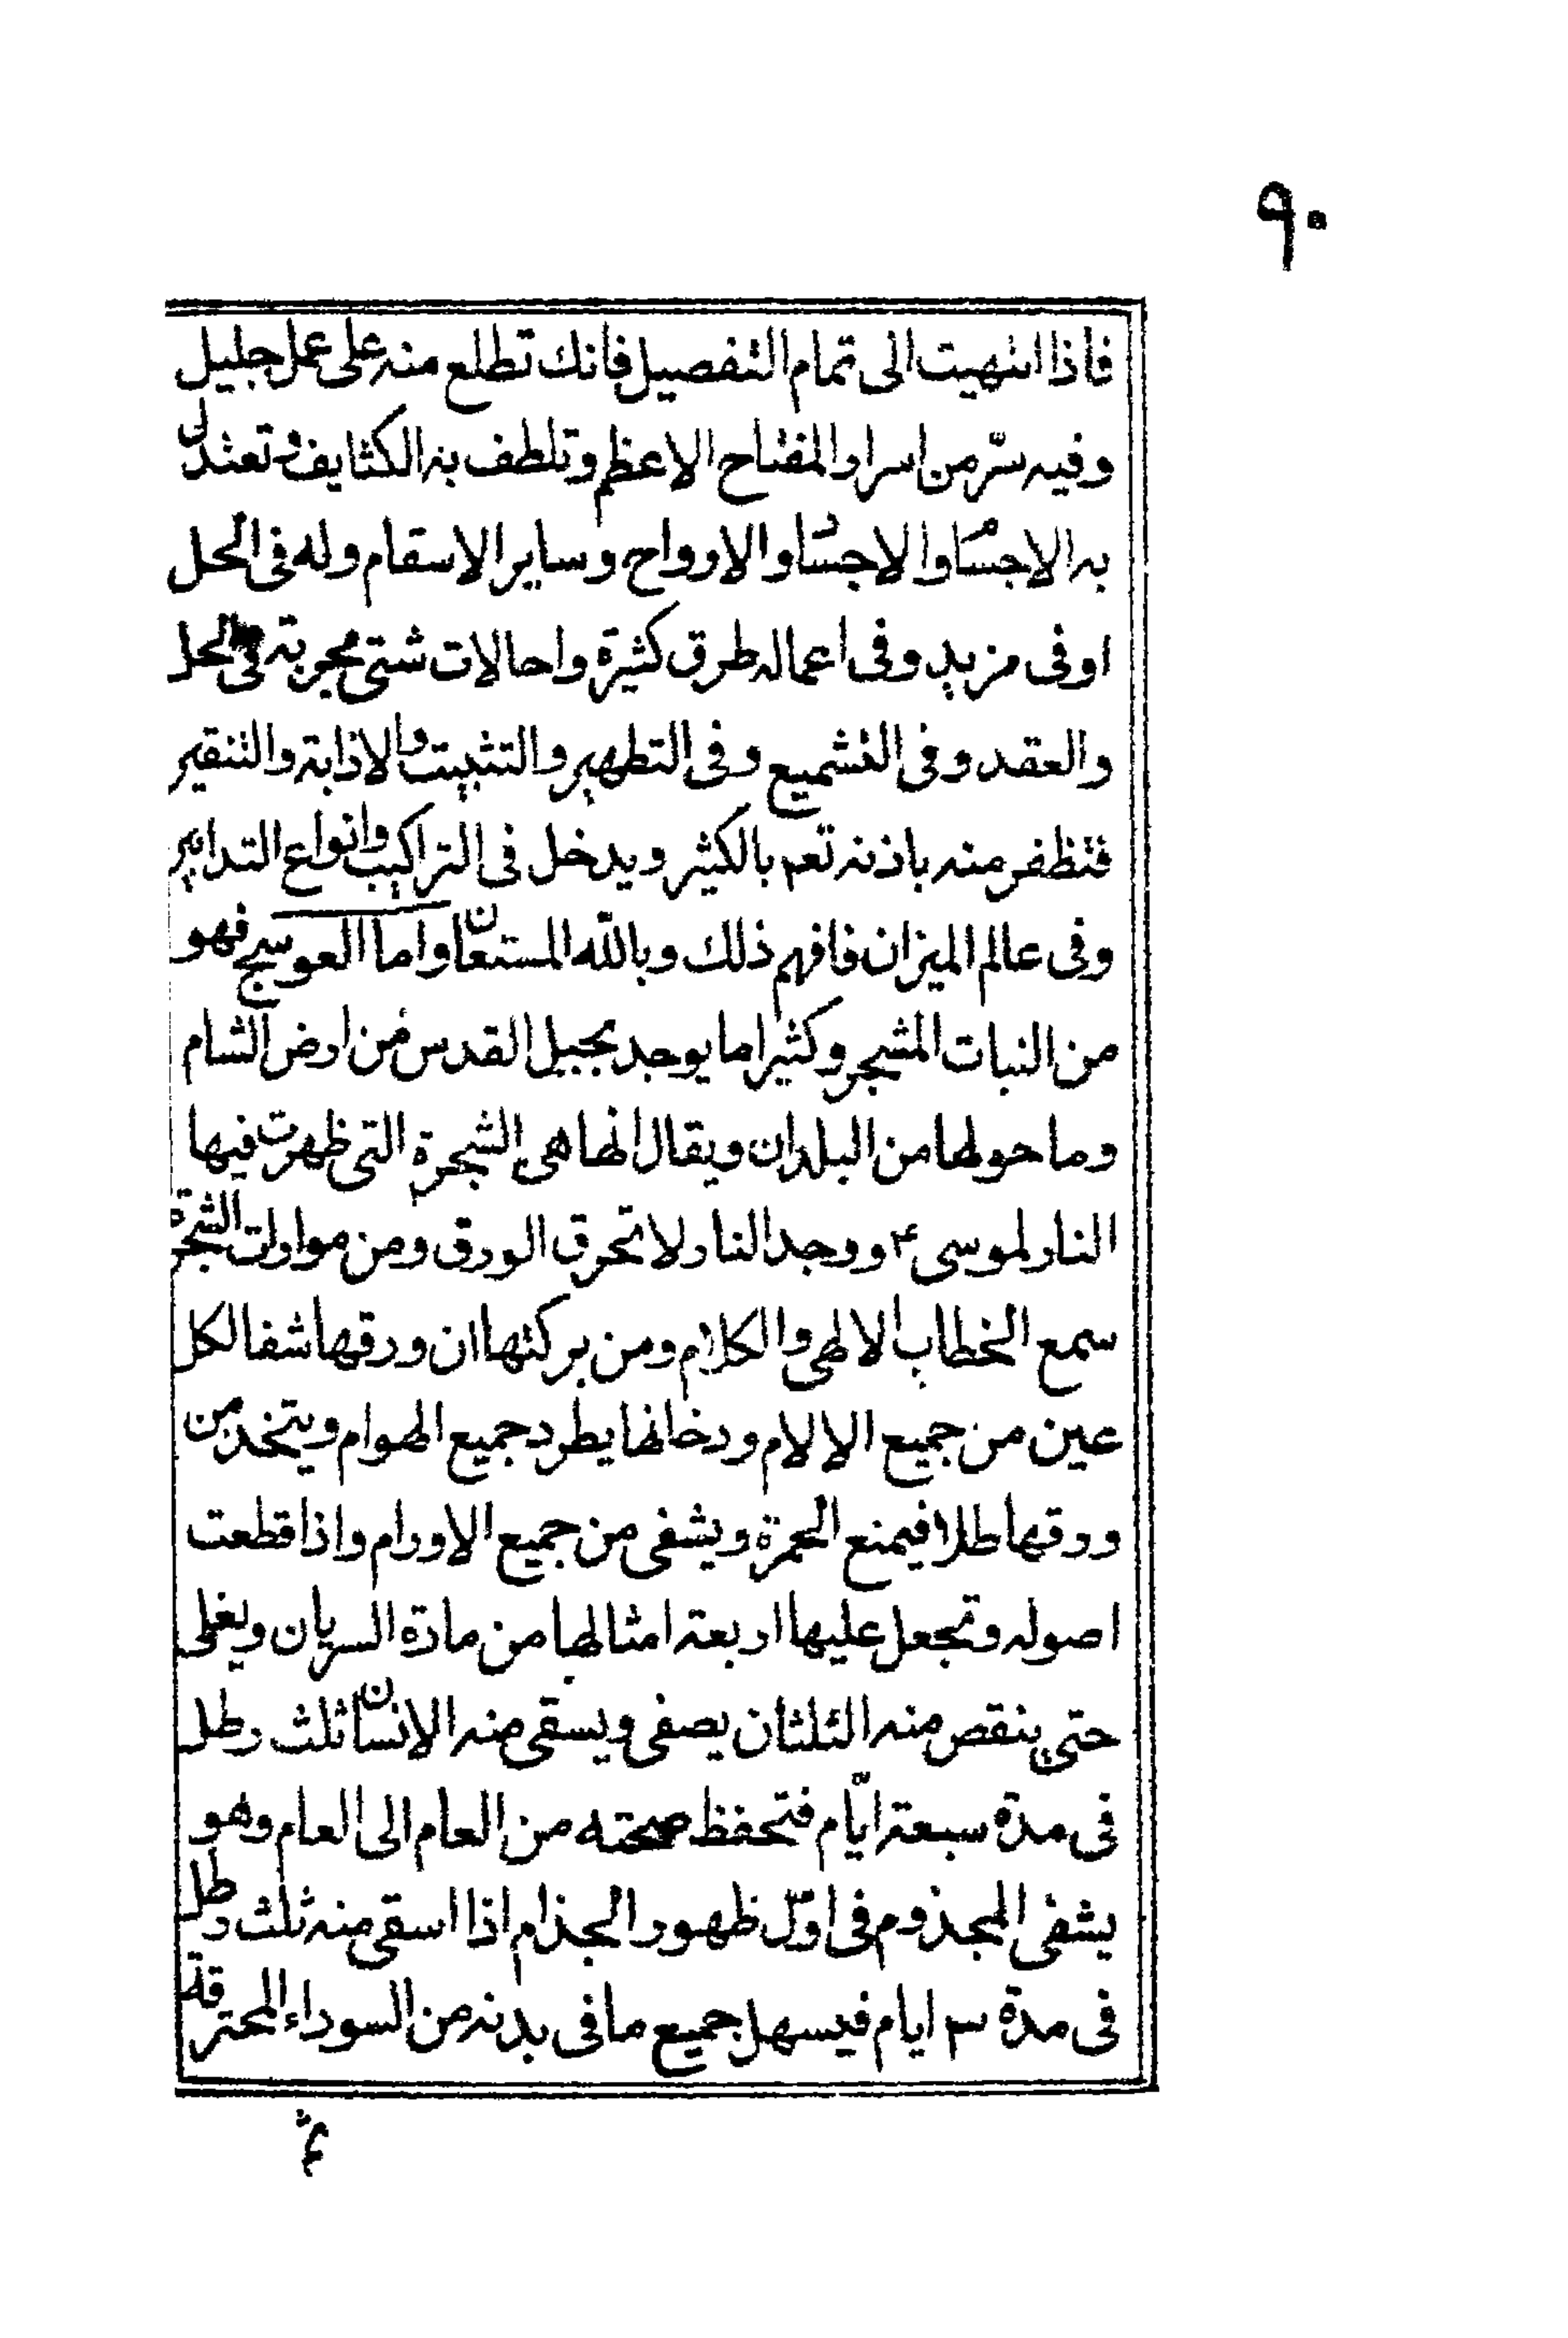 ٩٠
فاذا انتهيت الى تمام التفصيل فانك تطلع منه على عمل جليل
وفيه سرّ من اسرار المفتاح الاعظم وتلطف به الكثايف وتعتدل
به الاجسام والاجساد والارواح وساير الاسقام وله فى الحل
اوفى مزيد وفى اعماله طرق كثيرة واحالات شتى مجربة فى الحل
والعقد وفى التشميع وفى التطهير والتثبيت والاذابة والتنقير
فتظفر منه باذنه تعم بالكثير ويدخل فى التراكيب وانواع التدابير
وفى عالم الميزان فافهم ذلك وبالله المستعان واما العوسج فهو
من النبات المشجر وكثيرا ما يوجد بجبل القدس من ارض الشام
وما حولها من البلدان ويقال انها هى الشجرة التى ظهرت فيها
النار لموسى ٤ ووجد النار لا تحرق الورق ومن موارات الشجرة
سمع الخطاب الالهى والكلام ومن بركتها ان ورقها شفا لكل
عين من جميع الالام ودخانها يطرد جميع الهوام ويتخذ من
ورقها طلا فيمنع الحمرة ويشفى من جميع الاورام واذا قطعت
اصوله وتجعل عليها اربعة امثالها من مادة السريان ويغلى
حتى ينقص منه الثلثان يصفى ويسقى منه الانسان ثلث رطل
فى مدة سبعة ايّام فتحفظ صحته من العام الى العام وهو
يشفى المجذوم فى اوّل ظهور الجذام اذا اسقى منه ثلث رطل
فى مدة ٣ ايام فيسهل جميع ما فى بدنه من السوداء المحترقة
ثم